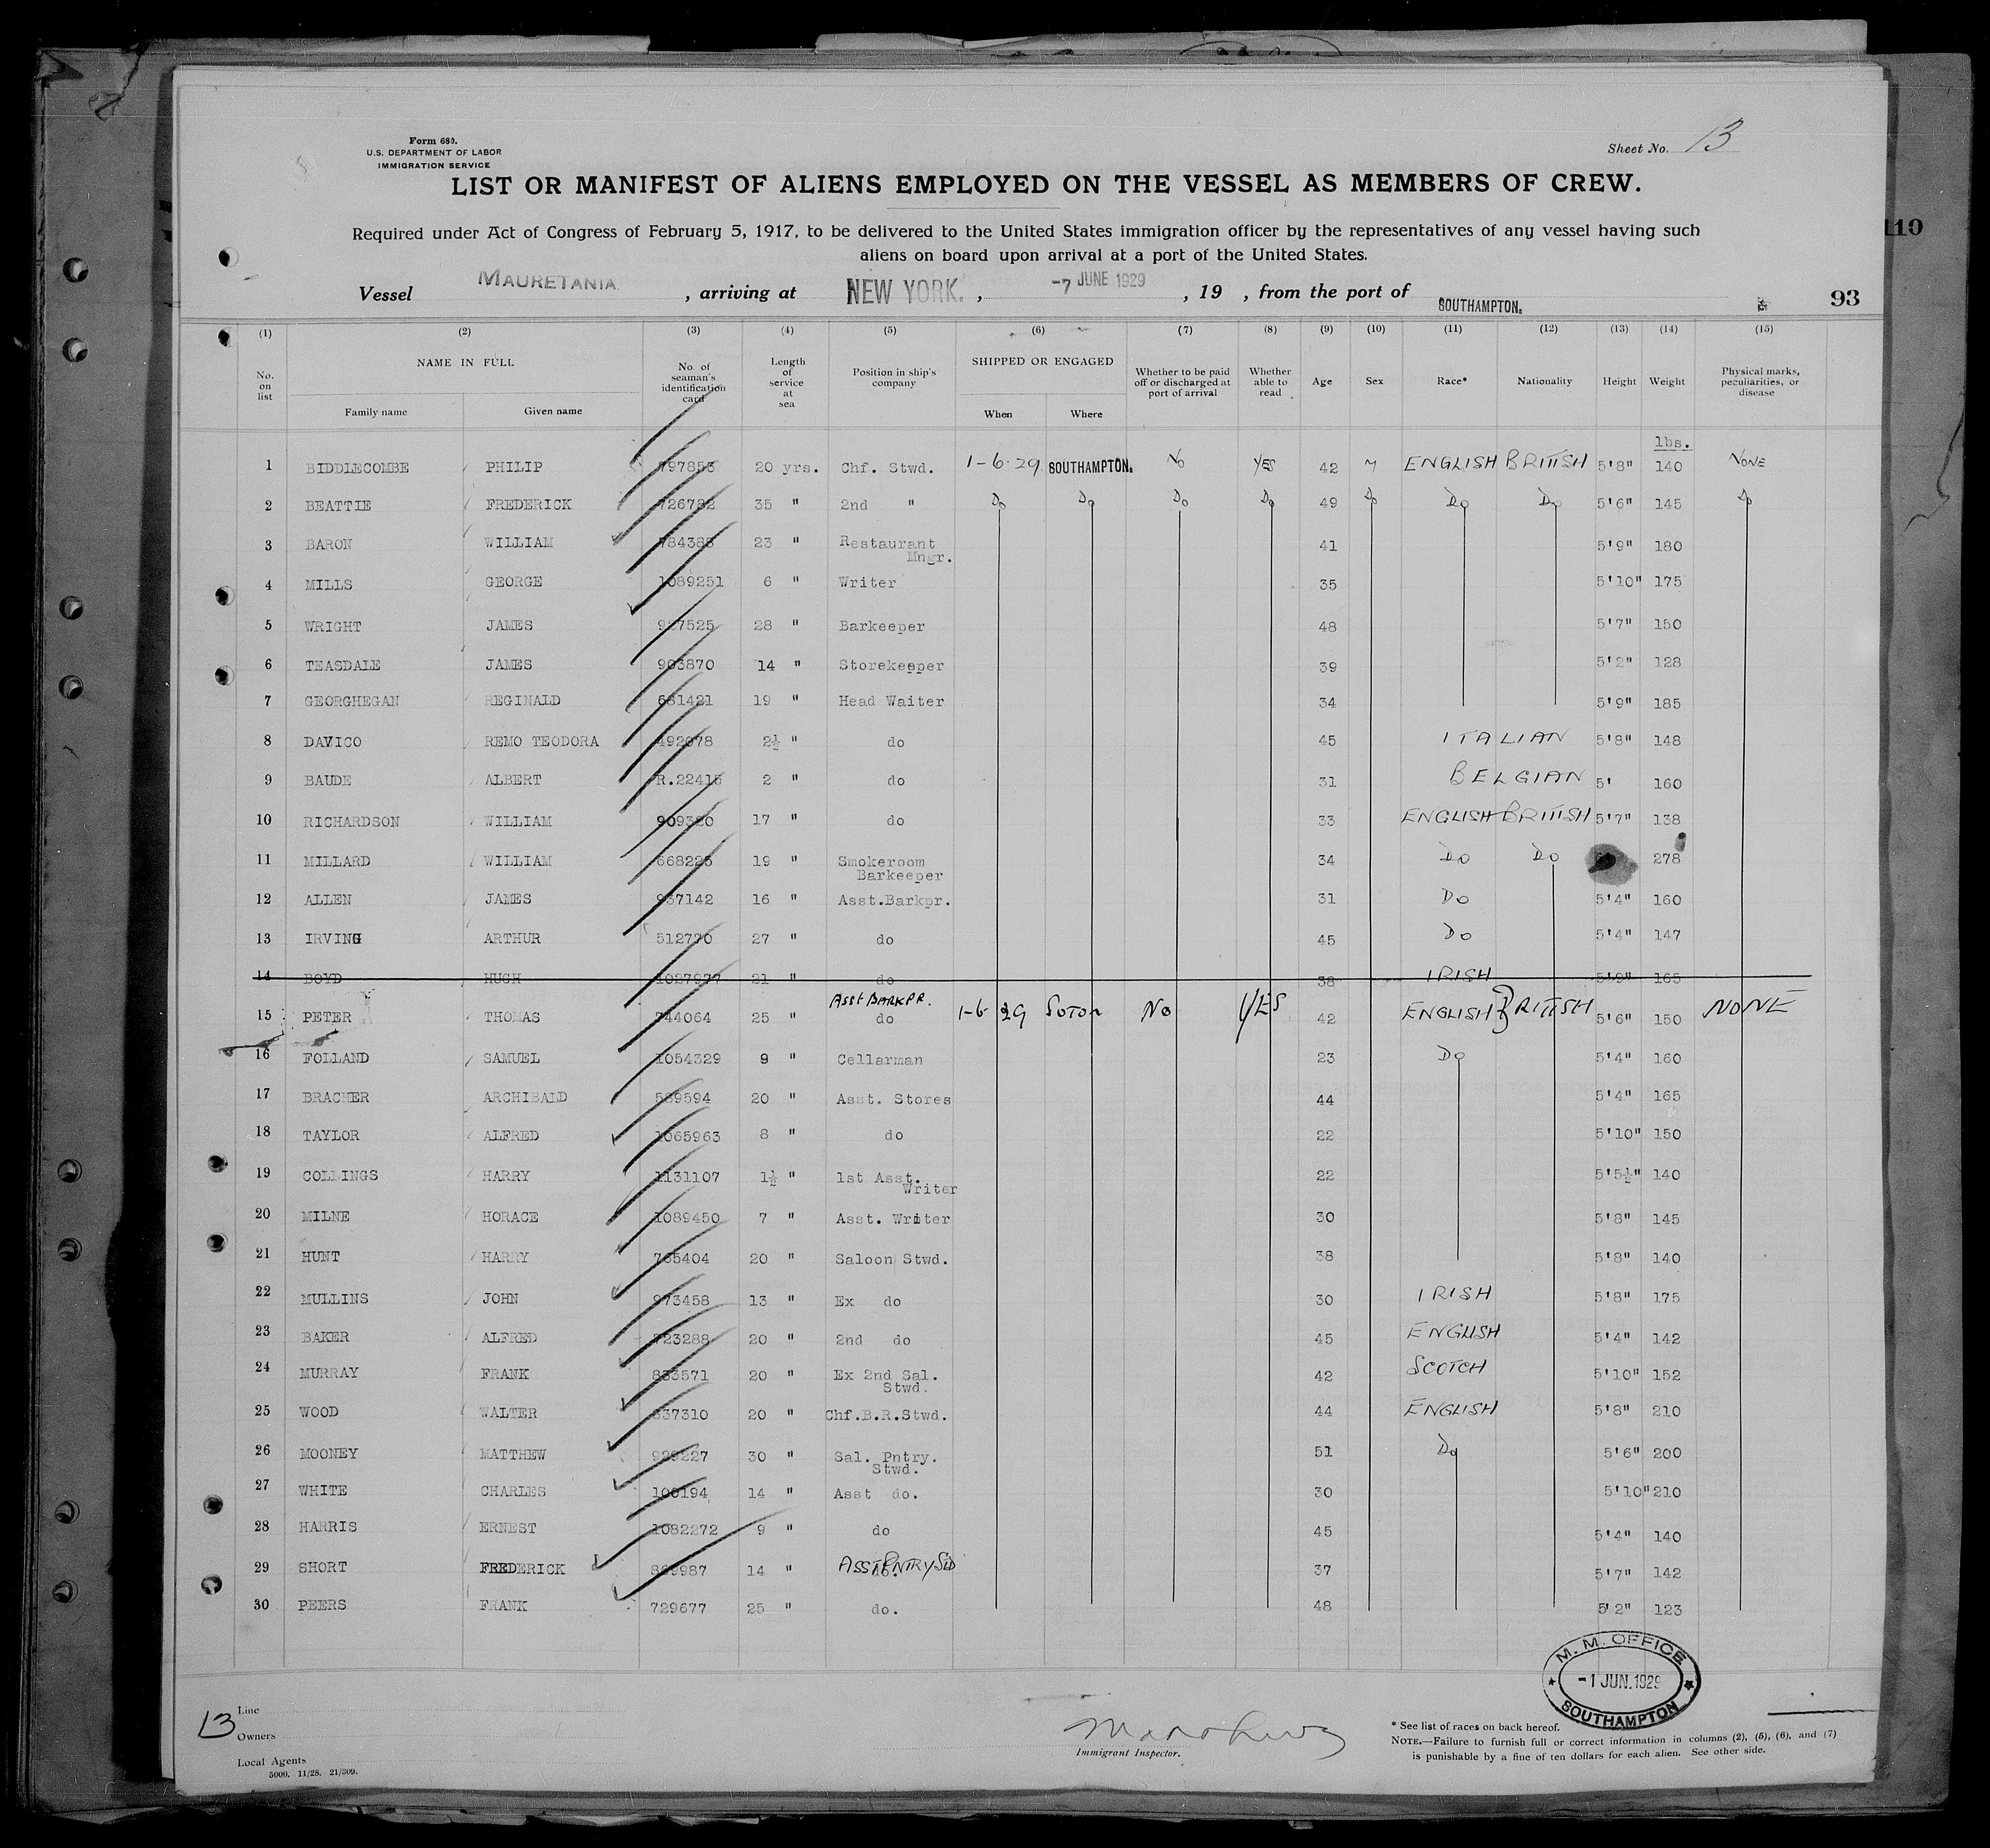 Form 680.
U.S. DEPARTMENT OF LABOR
IMMIGRATION SERVICE
Sheet No. 13
LIST OR MANIFEST OF ALIENS EMPLOYED ON THE VESSEL AS MEMBERS OF CREW.
Required under Act of Congress of February 5, 1917, to be delivered to the United States immigration officer by the representatives of any vessel having such
110
aliens on board upon arrival at a port of the United States.
Vessel MAURETANIA, arriving at NEW YORK. , -7 JUNE 1929 , 19 , from the port of SOUTHAMPTON. 93
(1) (2) (3) (4) (5) (6) (7) (8) (9) (10) (11) (12) (13) (14) (15)
No. on list NAME IN FULL Family name Given name No. of seaman's identification card Length of service at sea Position in ship's company SHIPPED OR ENGAGED When Where Whether to be paid off or discharged at port of arrival Whether able to read Age Sex Race* Nationality Height Weight Physical marks, peculiarities, or disease
lbs.
1 BIDDLECOMBE PHILIP 797853 20 yrs. Chf. Stwd. 1-6-29 SOUTHAMPTON. No YES 42 M ENGLISH BRITISH 5'8" 140 NONE
2 BEATTIE FREDERICK 726782 35 " 2nd " Do Do Do Do 49 Do Do Do 5'6" 145 Do
3 BARON WILLIAM 784388 23 " Restaurant Mngr. 41 5'9" 180
4 MILLS GEORGE 1089251 6 " Writer 35 5'10" 175
5 WRIGHT JAMES 927525 28 " Barkeeper 48 5'7" 150
6 TEASDALE JAMES 903870 14 " Storekeeper 39 5'2" 128
7 GEORGHEGAN REGINALD 681421 19 " Head Waiter 34 5'9" 185
8 DAVICO REMO TEODORA 492078 2½ " do 45 ITALIAN 5'8" 148
9 BAUDE ALBERT R.22415 2 " do 31 BELGIAN 5' 160
10 RICHARDSON WILLIAM 909380 17 " do 33 ENGLISH BRITISH 5'7" 138
11 MILLARD WILLIAM 668225 19 " Smokeroom Barkeeper 34 Do Do 278
12 ALLEN JAMES 937142 16 " Asst.Barkpr. 31 Do 5'4" 160
13 IRVING ARTHUR 512790 27 " do 45 Do 5'4" 147
14 BOYD HUGH 1027977 21 " do 38 IRISH 5'9" 165
15 PETER THOMAS 744064 25 " ASST BARKPR. do 1-6-29 SOTON No YES 42 ENGLISH BRITISH 5'6" 150 NONE
16 FOLLAND SAMUEL 1054329 9 " Cellarman 23 Do 5'4" 160
17 BRACHER ARCHIBALD 589594 20 " Asst. Stores 44 5'4" 165
18 TAYLOR ALFRED 1065963 8 " do 22 5'10" 150
19 COLLINGS HARRY 1131107 1½ " 1st Asst. Writer 22 5'5½" 140
20 MILNE HORACE 1089450 7 " Asst. Writer 30 5'8" 145
21 HUNT HARRY 765404 20 " Saloon Stwd. 38 5'8" 140
22 MULLINS JOHN 973458 13 " Ex do 30 IRISH 5'8" 175
23 BAKER ALFRED 723288 20 " 2nd do 45 ENGLISH 5'4" 142
24 MURRAY FRANK 833571 20 " Ex 2nd Sal. Stwd. 42 SCOTCH 5'10" 152
25 WOOD WALTER 837310 20 " Chf.B.R.Stwd. 44 ENGLISH 5'8" 210
26 MOONEY MATTHEW 929227 30 " Sal. Pntry. Stwd. 51 Do 5'6" 200
27 WHITE CHARLES 100194 14 " Asst do. 30 5'10" 210
28 HARRIS ERNEST 1082272 9 " do 45 5'4" 140
29 SHORT FREDERICK 869987 14 " ASST PNTRY STD 37 5'7" 142
30 PEERS FRANK 729677 25 " do. 48 5'2" 123
M. M. OFFICE
-1 JUN.1929
SOUTHAMPTON
13
Line
Owners
Local Agents
5000. 11/28. 21/309.
Immigrant Inspector.
* See list of races on back hereof.
NOTE.—Failure to furnish full or correct information in columns (2), (5), (6), and (7)
is punishable by a fine of ten dollars for each alien. See other side.